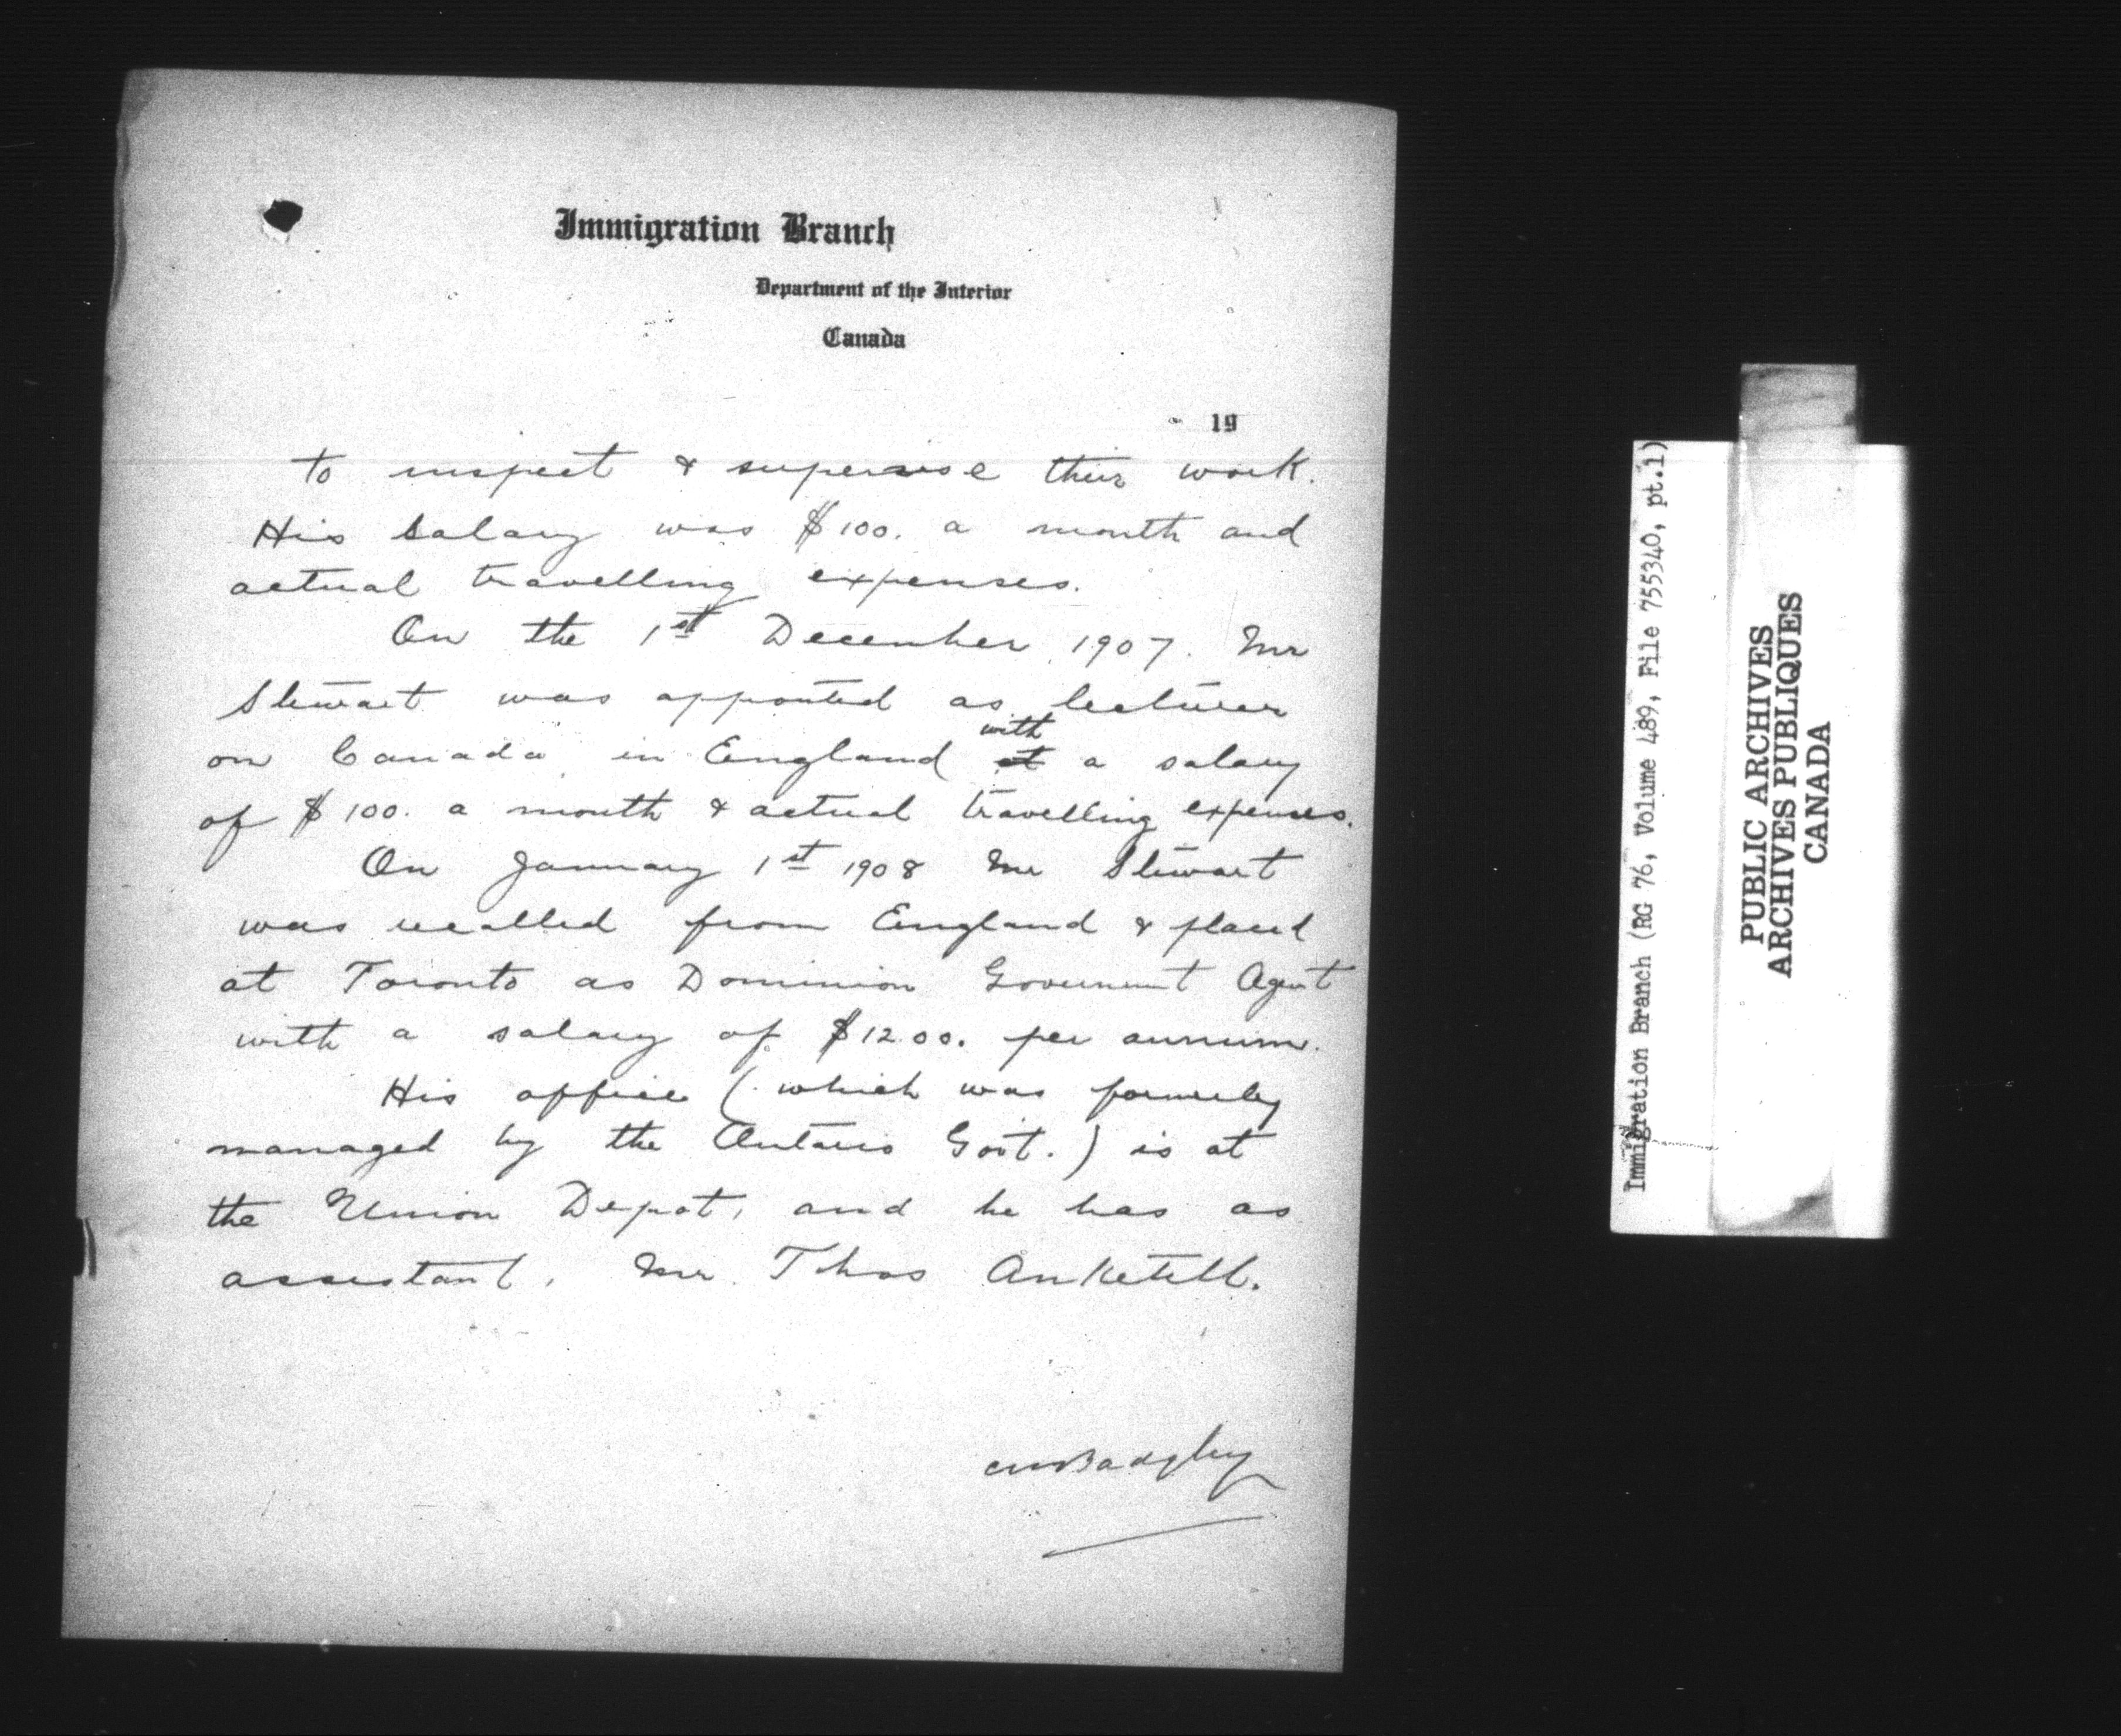 Immigration Branch
Department of the Interior
Canada
19
to inspect & supervise their work.
His salary was $100. a month and
actual travelling expenses.
On the 1st December 1907. Mr
Stewart was appointed as lecturer
with
on Canada in England at a salary
of $100. a month & actual travelling expenses.
On January 1st 1908 Mr Stewart
was recalled from England & placed
at Toronto as Dominion Government Agent
with a salary of $1200. per annum.
His office (which was formerly
managed by the Ontario Govt.) is at
the Union Depot, and he has as
assistant, Mr. Thos Anketell.
Badgley
Immigration Branch (RG 76, Volume 489, File 755340, pt.1)
PUBLIC ARCHIVES
ARCHIVES PUBLIQUES
CANADA